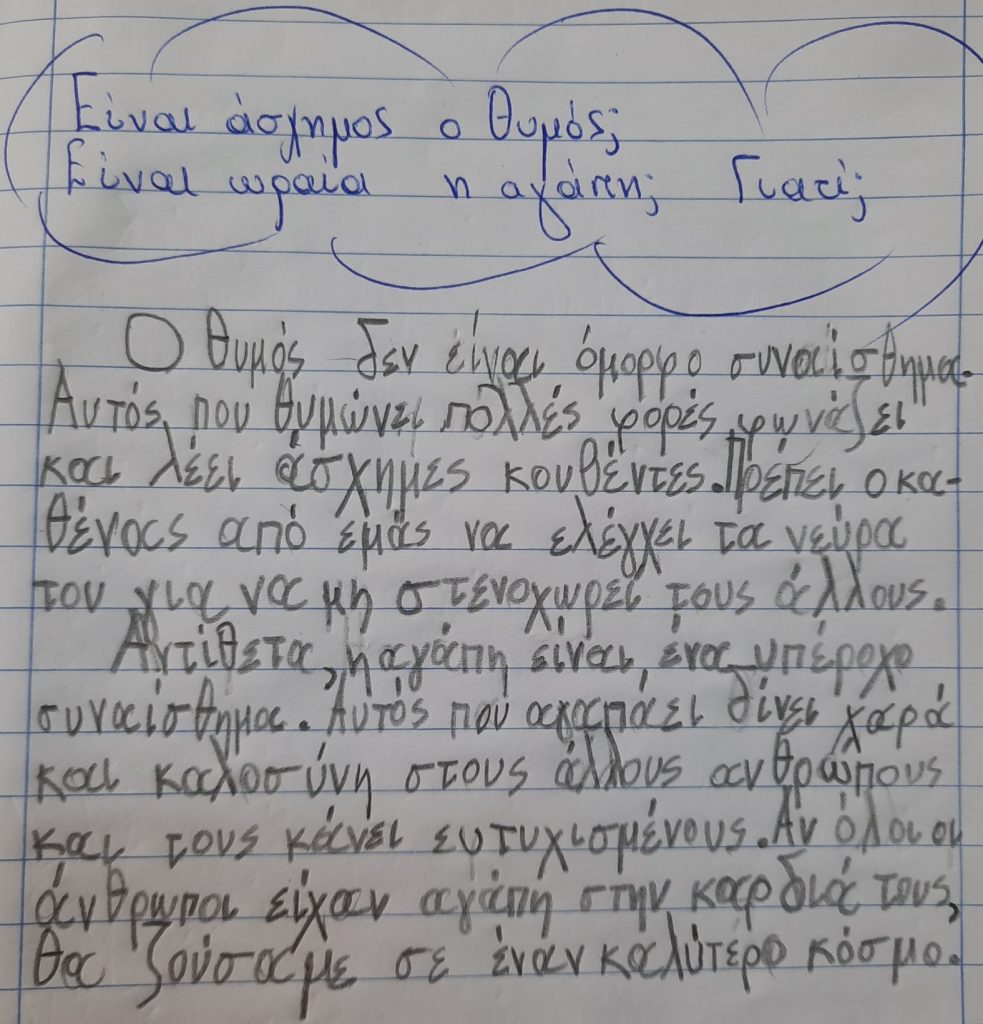 Είναι άσχημος ο θυμός;
Είναι ωραία η αγάπη; Γιατί;
Ο θυμός δεν είναι όμορφο συναίσθημα.
Αυτός που θυμώνει πολλές φορές φωνάζει
και λέει άσχημες κουβέντες. Πρέπει ο κα-
θένας από εμάς να ελέγχει τα νεύρα
του για να μη στενοχωρεί τους άλλους.
Αντίθετα, η αγάπη είναι ένα υπέροχο
συναίσθημα. Αυτός που αγαπάει δίνει χαρά
και καλοσύνη στους άλλους ανθρώπους
και τους κάνει ευτυχισμένους. Αν όλοι οι
άνθρωποι είχαν αγάπη στην καρδιά τους,
θα ζούσαμε σε έναν καλύτερο κόσμο.